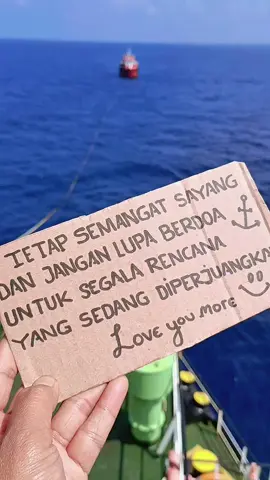 TETAP SEMANGAT SAYANG
DAN JANGAN LUPA BERDOA
UNTUK SEGALA RENCANA
YANG SEDANG DIPERJUANGKA
Love you more